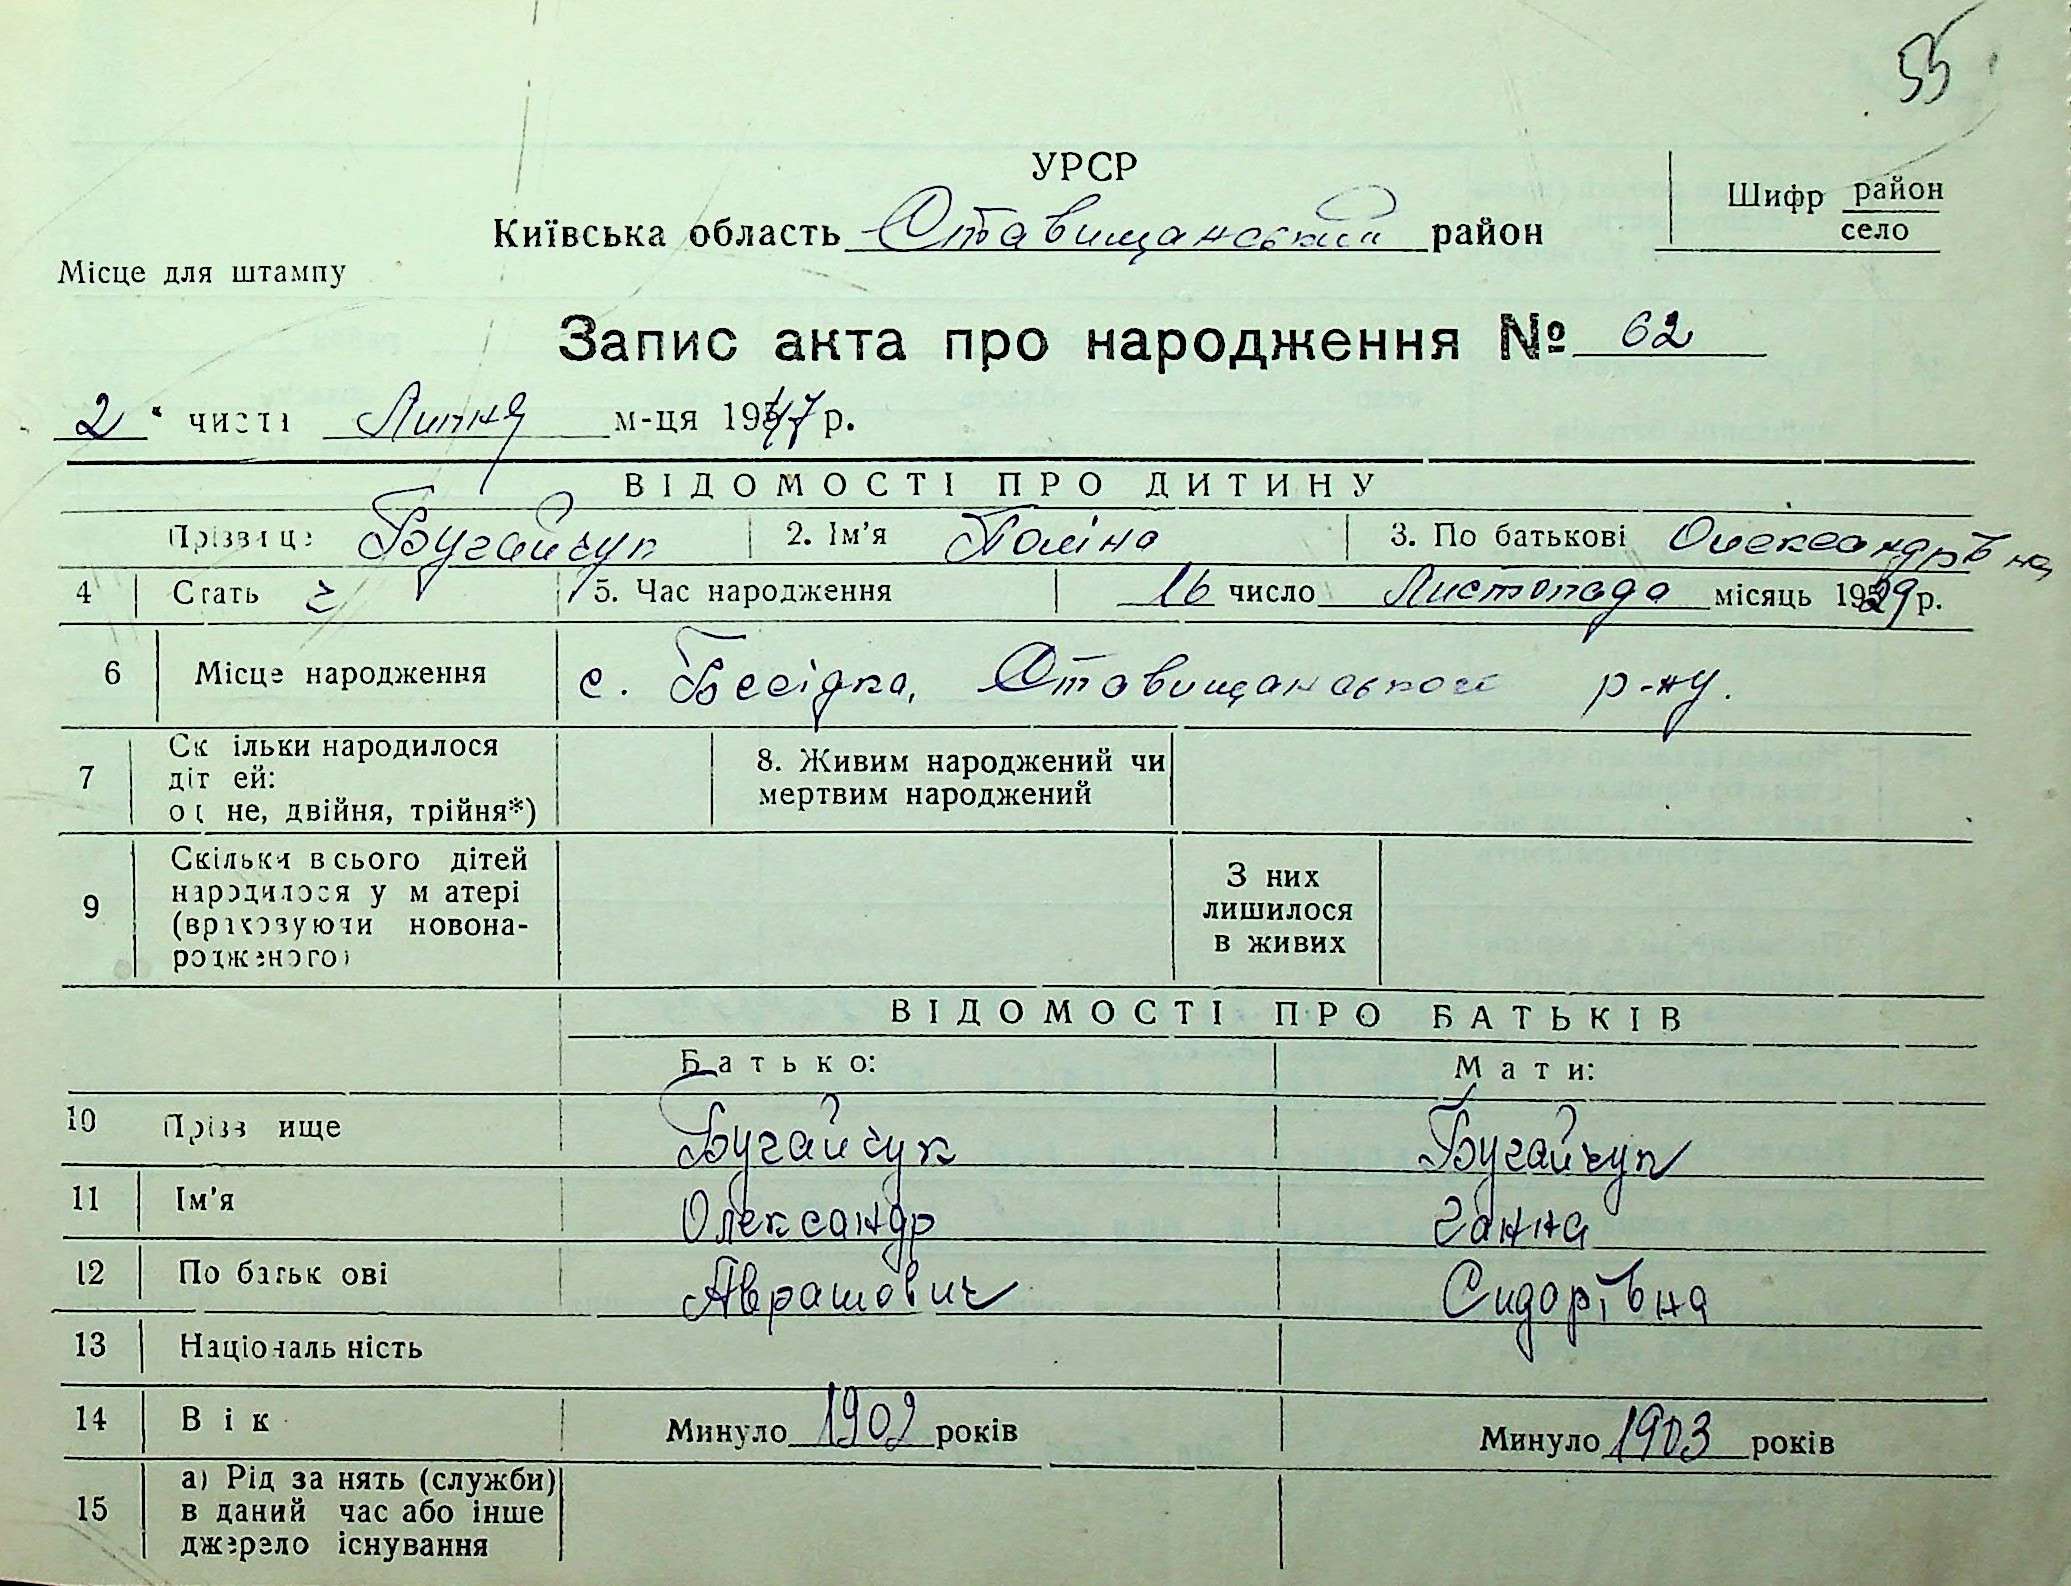 55
УРСР
Київська область Ставищанський район
Шифр район
село
Місце для штампу
Запис акта про народження № 62
2 " числа Липня м-ця 1947 р.
ВІДОМОСТІ ПРО ДИТИНУ
Прізвище Бугайчук 2. Ім'я Поліна 3. По батькові Олександрівна
4 Стать 5. Час народження 16 число Листопада місяць 1929 р.
6 Місце народження с. Бесідка, Ставищанського р-ну.
7 Скільки народилося
дітей:
одне, двійня, трійня*)
8. Живим народжений чи
мертвим народжений
9 Скільки всього дітей
народилося у матері
(враховуючи новона-
родженого)
З них
лишилося
в живих
ВІДОМОСТІ ПРО БАТЬКІВ
Батько: Мати:
10 Прізвище Бугайчук Бугайчук
11 Ім'я Олександр Ганна
12 По батькові Аврамович Сидорівна
13 Національність
14 Вік Минуло 1902 років Минуло 1903 років
15 а) Рід занять (служби)
в даний час або інше
джерело існування